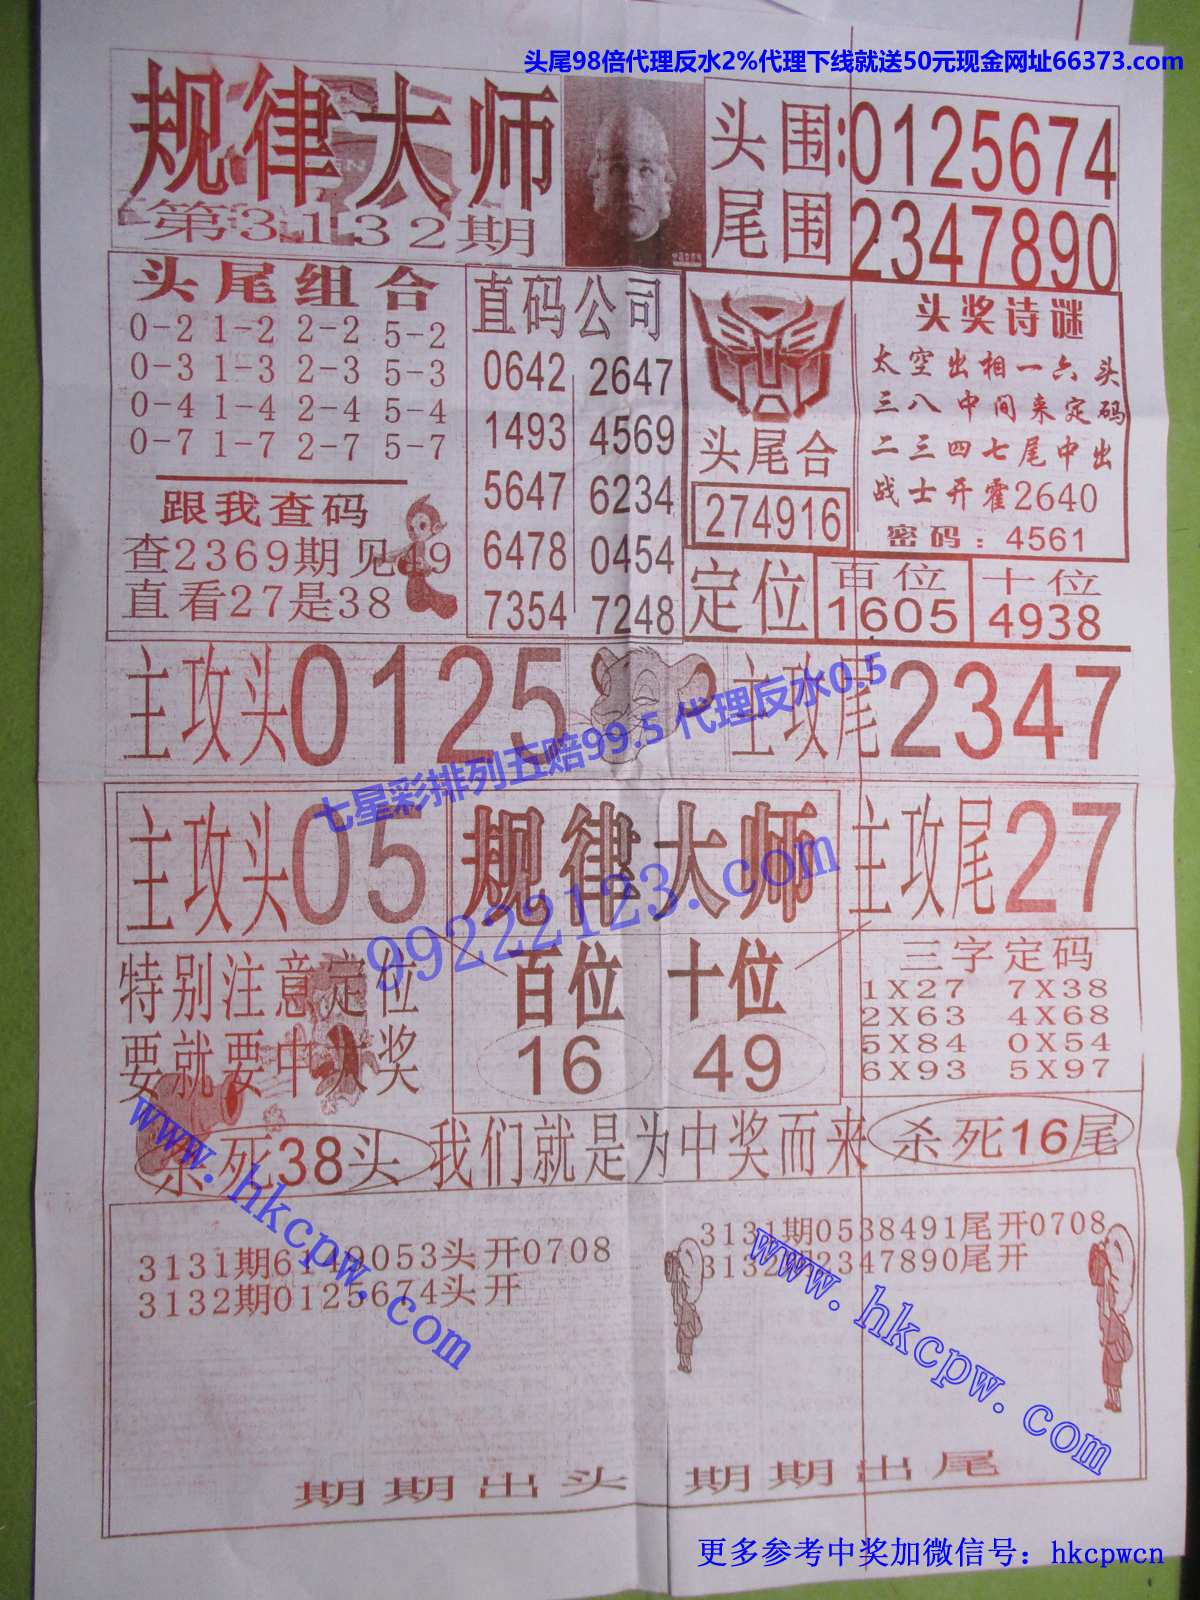 头尾98倍代理反水2%代理下线就送50元现金网址66373.com
规律大师
第3132期
头围:0125674
尾围2347890
头尾组合
0-2 1-2 2-2 5-2
0-3 1-3 2-3 5-3
0-4 1-4 2-4 5-4
0-7 1-7 2-7 5-7
跟我查码
查2369期见49
直看27是38
直码公司
0642 2647
1493 4569
5647 6234
6478 0454
7354 7248
头尾合
274916
头奖诗谜
太空出相一六头
三八中间来定码
二三四七尾中出
战士开霍2640
密码：4561
定位
百位 十位
1605 4938
主攻头0125
主攻尾2347
七星彩排列五赔99.5 代理反水0.5
主攻头05
规律大师
主攻尾27
99222123.com
特别注意定位
要就要中大奖
百位 十位
16 49
三字定码
1X27 7X38
2X63 4X68
5X84 0X54
6X93 5X97
杀死38头
我们就是为中奖而来
杀死16尾
www.hkcpw.com
3131期6149053头开0708
3132期0125674头开
3131期0538491尾开0708
3132期2347890尾开
www.hkcpw.com
期期出头
期期出尾
更多参考中奖加微信号：hkcpwcn